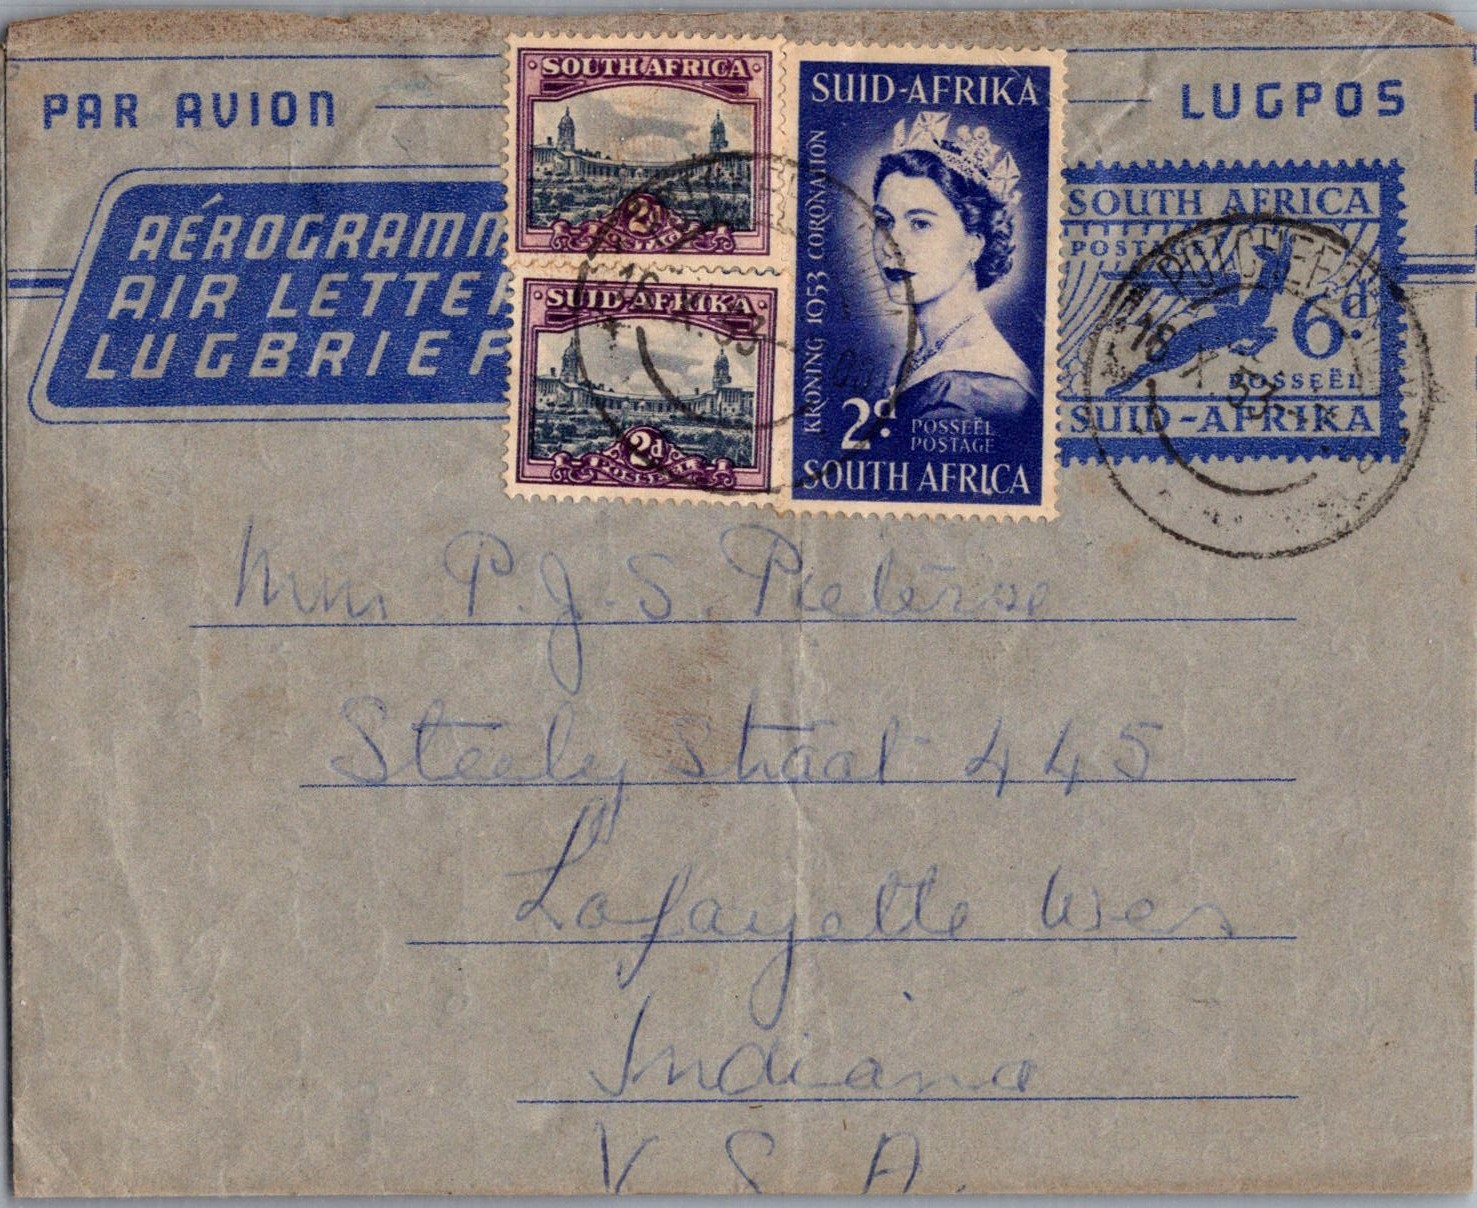 PAR AVION
LUGPOS
AÉROGRAMM
AIR LETTER
LUGBRIEF
SOUTH AFRICA
2d
POSTAGE
SUID-AFRIKA
2d
POSSEËL
SUID-AFRIKA
KRONING 1953 CORONATION
2d
POSSEËL
POSTAGE
SOUTH AFRICA
SOUTH AFRICA
POSTAGE
6d
POSSEËL
SUID-AFRIKA
16 X 53
16 X 53
P.J.S. Pieterse
Steely Straat 445
Lafayette Wes
Indiana
V.S.A.